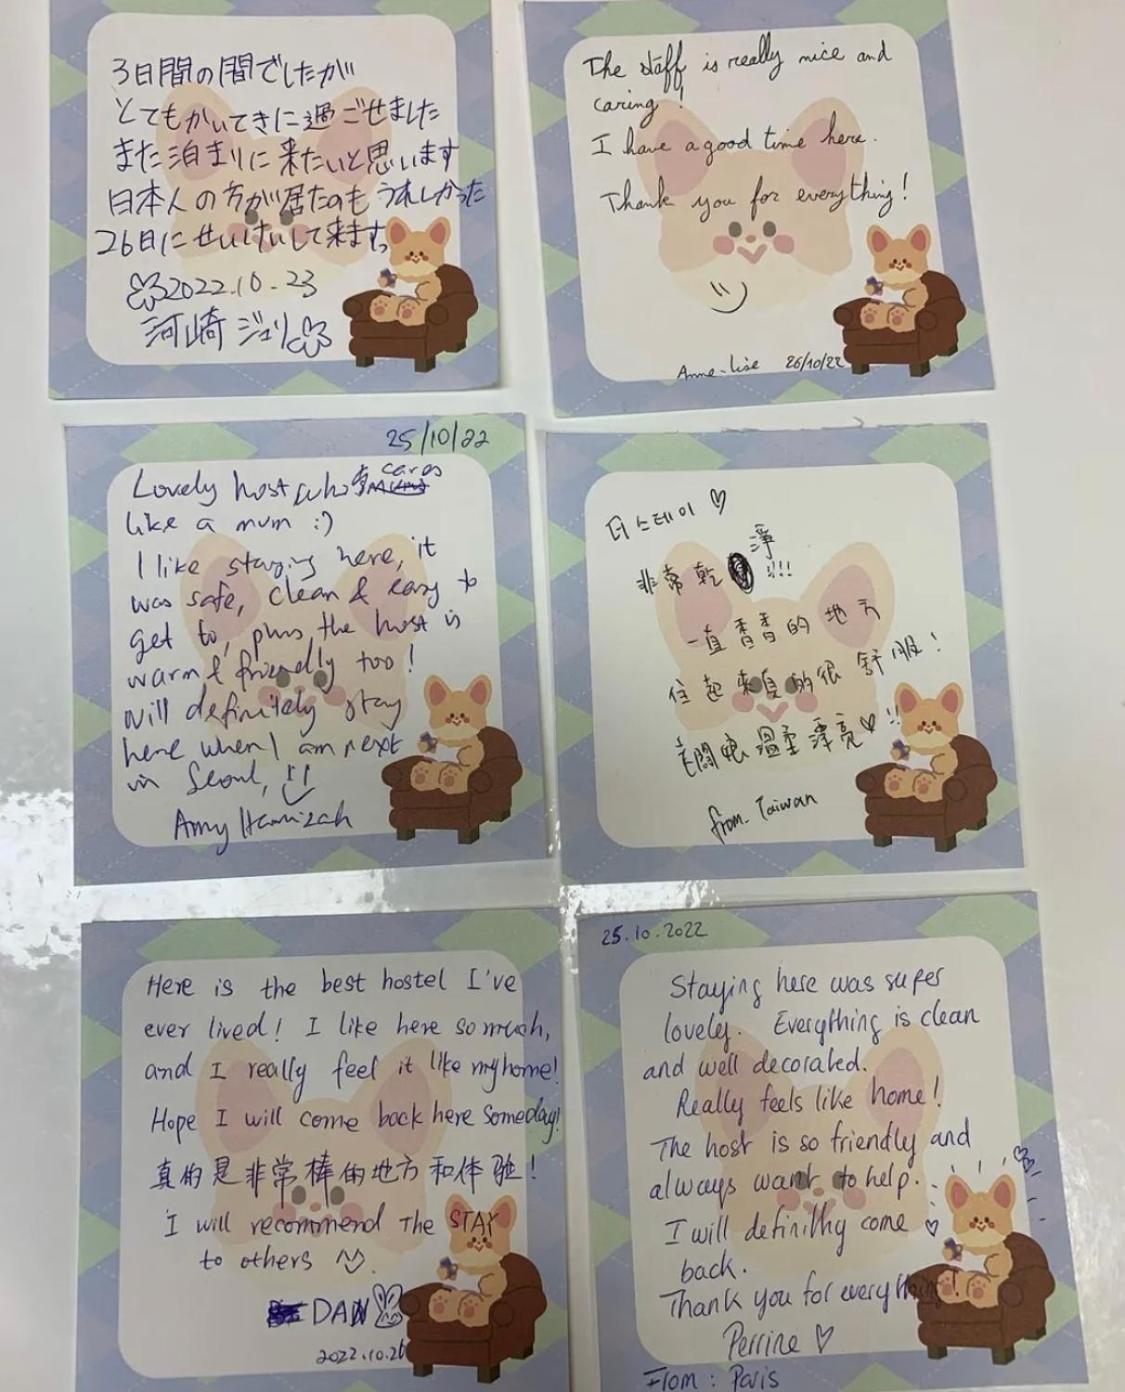 3日間の間でしたが
とてもかいてきに過ごせました
また泊まりに来たいと思います
日本人の方が居たのもうれしかった
26日にせいけいして来ます
2022.10.23
河崎 ジュリ
The staff is really nice and
caring!
I have a good time here.
Thank you for everything!
Anne-Lise 26/10/22
25/10/22
Lovely host who cares
like a mum :)
I like staying here, it
was safe, clean & easy to
get to, plus the host is
warm & friendly too!
Will definitely stay
here when I am next
in Seoul,
Amy Hamizah
더 스테이 ♡
非常乾淨!!!
一直香香的地方
住起來真的很舒服!
老闆娘溫柔漂亮♡!!
from. Taiwan
Here is the best hostel I've
ever lived! I like here so much,
and I really feel it like my home!
Hope I will come back here someday!
真的是非常棒的地方和体验!
I will recommend The STAY
to others
DAN
2022.10.26
25.10.2022
Staying here was super
lovely. Everything is clean
and well decorated.
Really feels like home!
The host is so friendly and
always want to help.
I will definithy come ♡
back.
Thank you for everything!
Perrine ♡
From : Paris